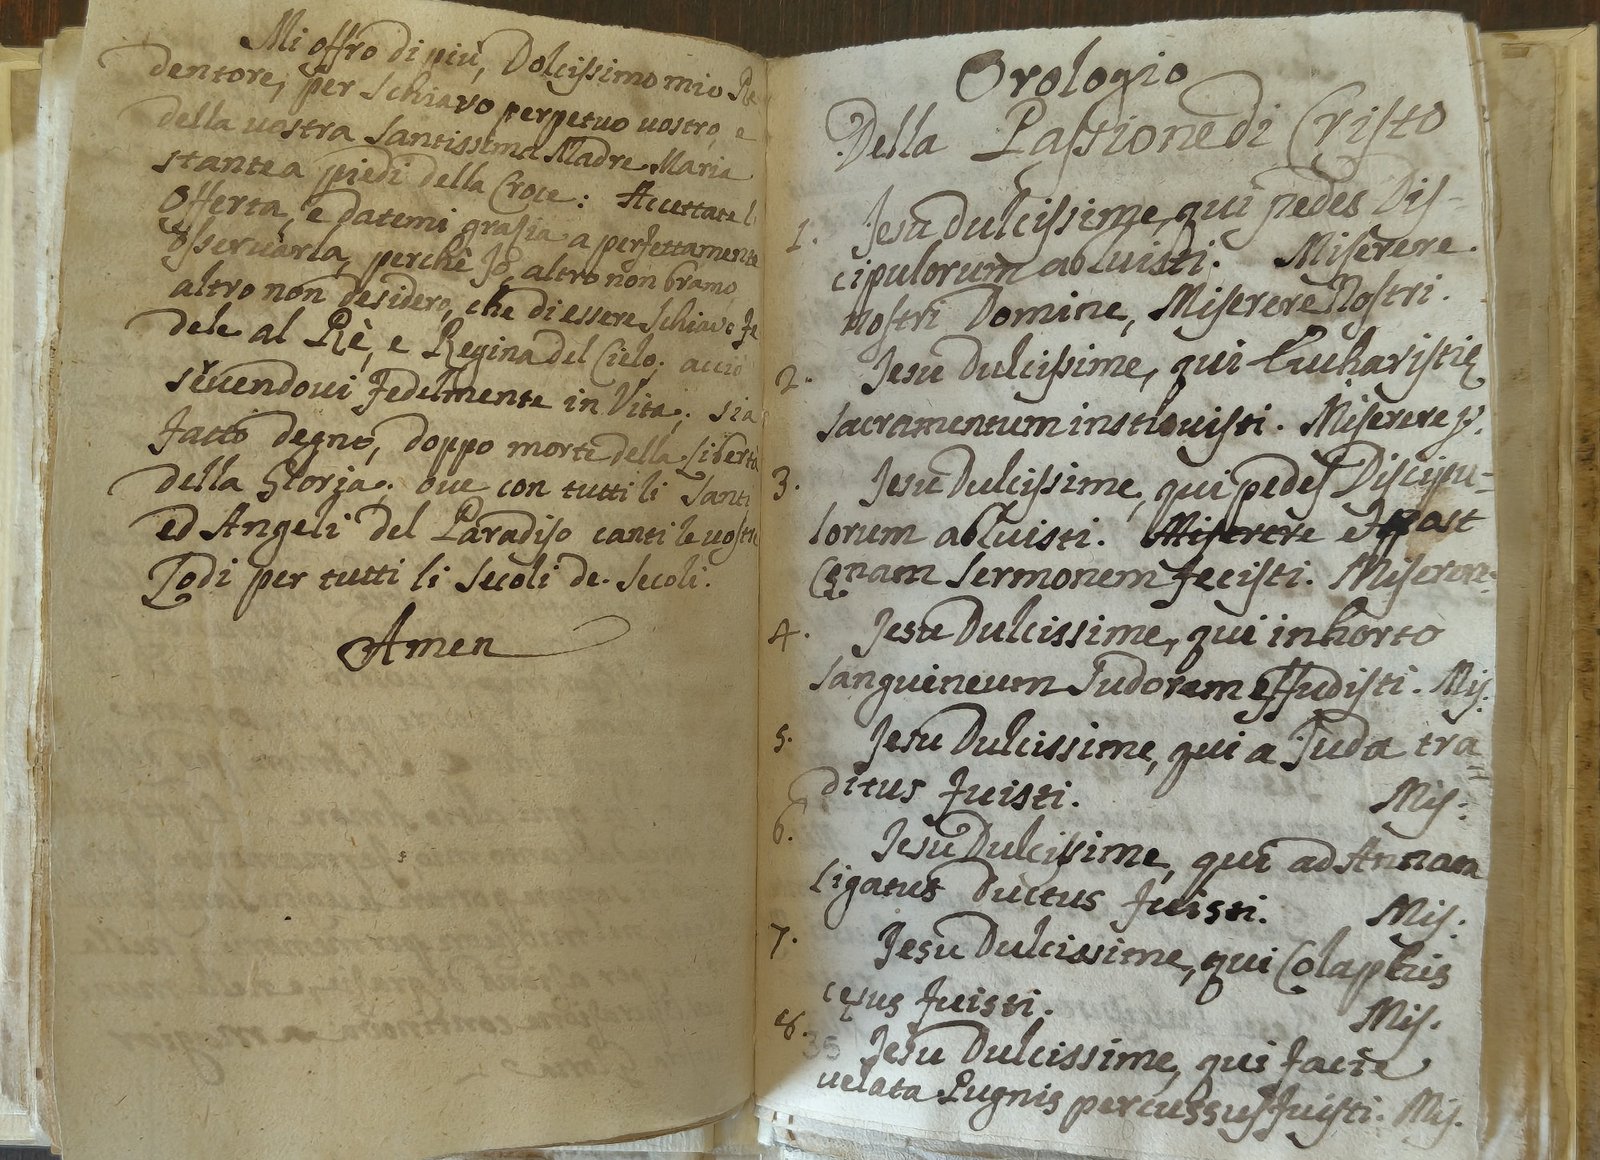 Mi offro di più, Dolcissimo mio Re
dentore, per schiavo perpetuo vostro, e
della vostra Santissima Madre Maria
stante a piedi della Croce: Accettate l
offerta, e datemi grasia a perfettamente
osservarla, perchè Io, altro non bramo,
altro non desidero, che di essere schiavo fe
dele al Rè, e Regina del Cielo; acciò
sevendovi fedelmente in Vita; sia
fatto degno, doppo morte della Libertà
della Gloria; ove con tutti li Santi
ed Angeli del Paradiso canti le vostre
Lodi per tutti li secoli de. secoli.
Amen
Orologio
Della Passione di Cristo
1. Jesu dulcissime, qui pedes Dis-
cipulorum abluisti. Miserere
nostri Domine, Miserere Nostri.
2. Jesu dulcissime, qui Eucharistię
sacramentum instituisti. Miserere
3. Jesu Dulcissime, qui pedes Discipu-
lorum abluisti. Miserere et post
Cęnam sermonem fecisti. Miserere
4. Jesu Dulcissime, qui in horto
sanguineum sudorem effudisti. Mis.
5. Jesu Dulcissime, qui a Juda tra
ditus fuisti. Mis:
6. Jesu Dulcissime, qui ad Annam
ligatus ductus fuisti. Mis.
7. Jesu Dulcissime, qui Colaphis
cęsus fuisti. Mis.
8. Jesu Dulcissime, qui facie
velata Pugnis percussus fuisti. Mis.
35